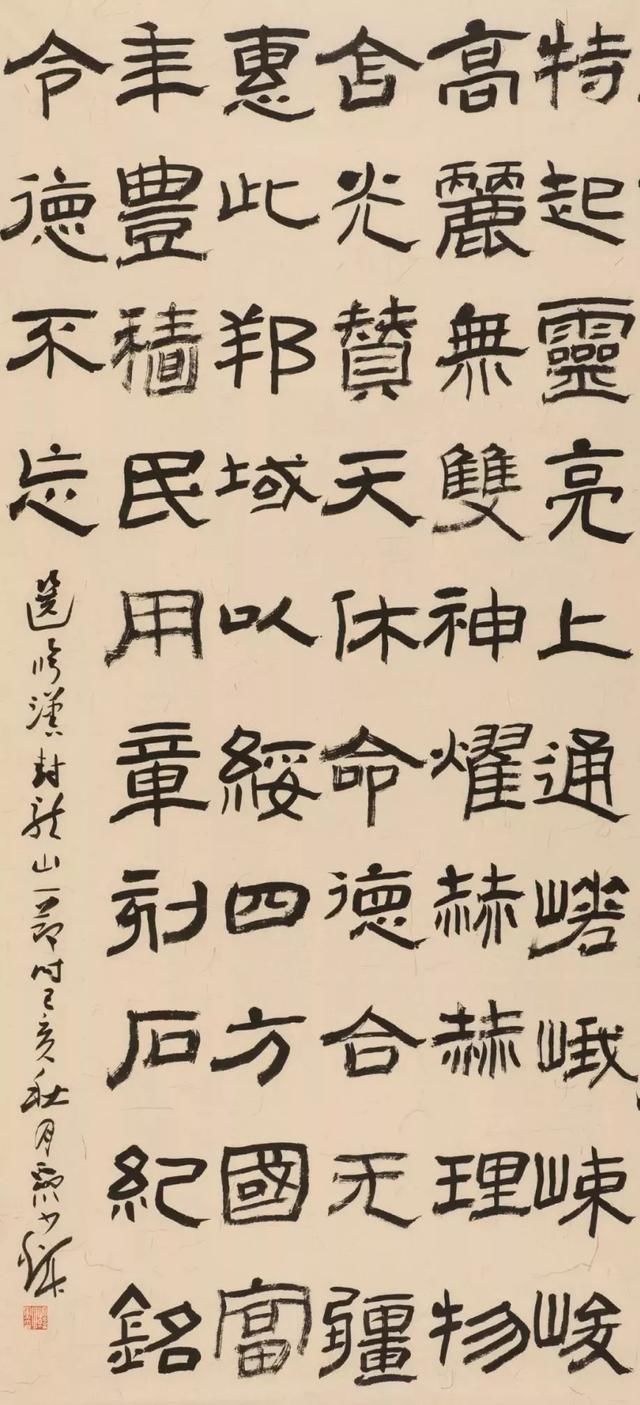 特起靈亮上通嵯峨崠峻
高麗無雙神燿赫赫理物
含光贊天休命德合无疆
惠此邦域以綏四方國富
年豐穡民用章刻石紀銘
令德不忘
選臨漢封龍山一節時己亥秋月